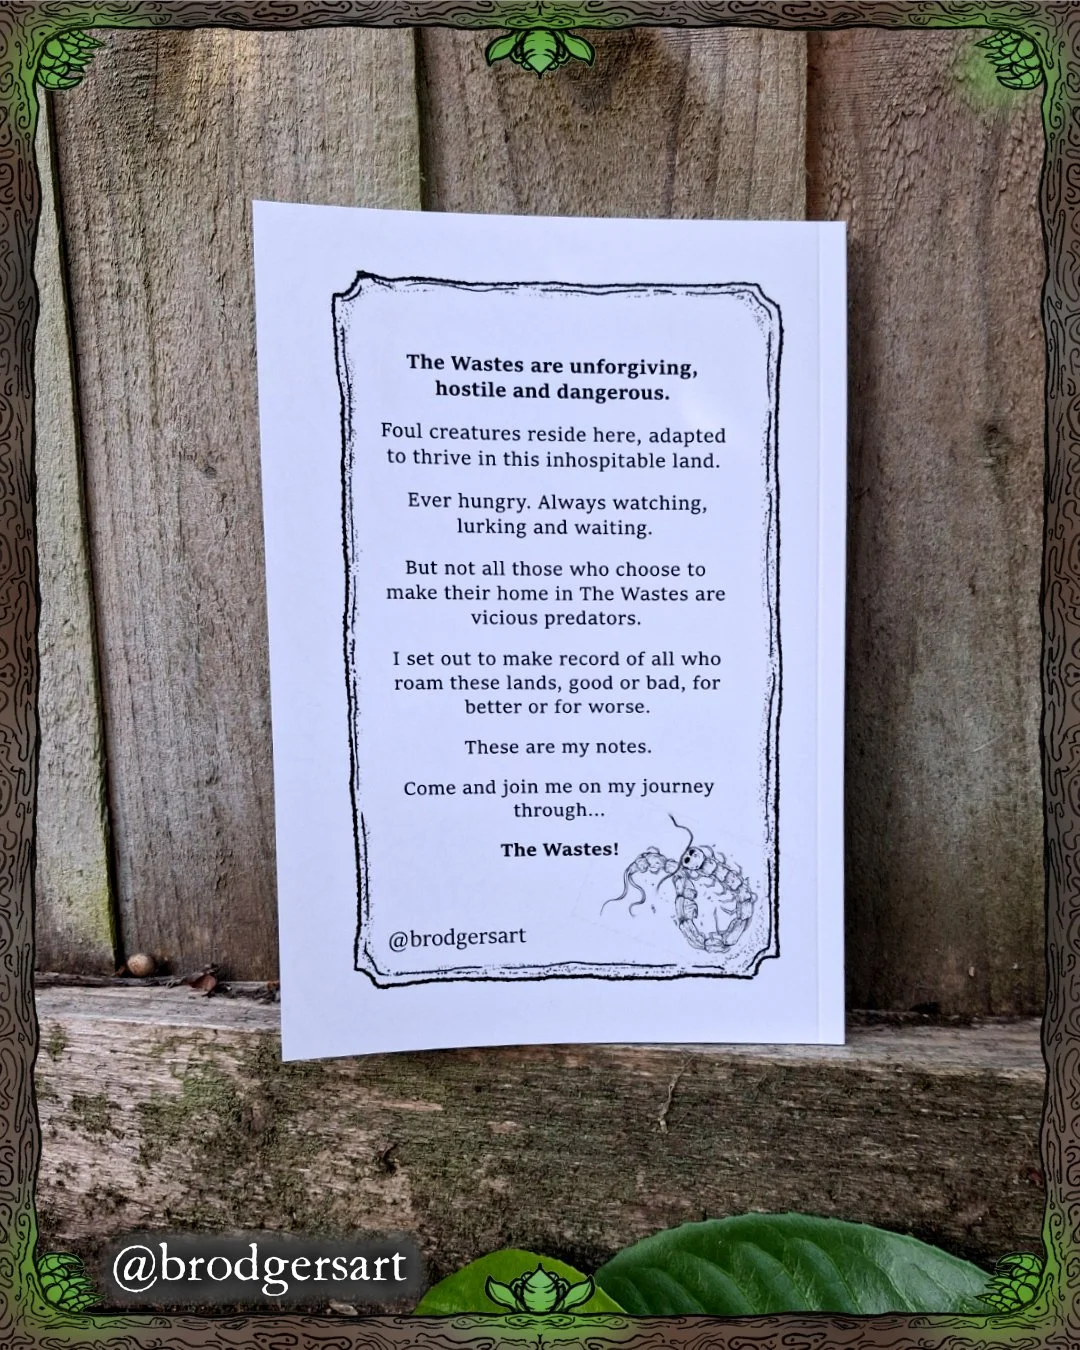 The Wastes are unforgiving,
hostile and dangerous.
Foul creatures reside here, adapted
to thrive in this inhospitable land.
Ever hungry. Always watching,
lurking and waiting.
But not all those who choose to
make their home in The Wastes are
vicious predators.
I set out to make record of all who
roam these lands, good or bad, for
better or for worse.
These are my notes.
Come and join me on my journey
through...
The Wastes!
@brodgersart
@brodgersart